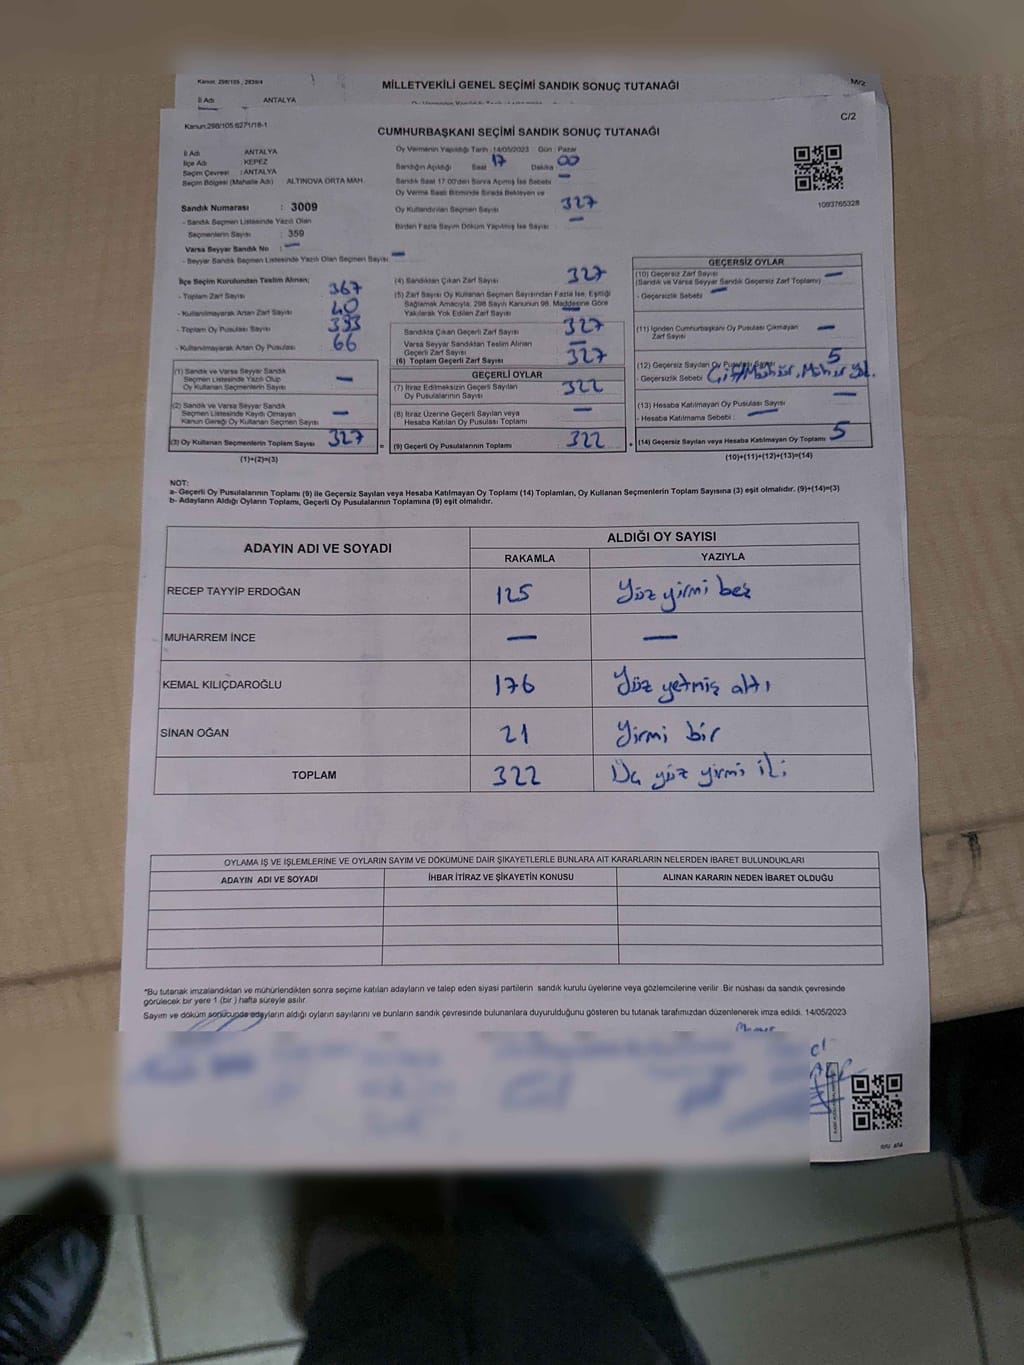 Kanun: 298/105, 2839/4
MİLLETVEKİLİ GENEL SEÇİMİ SANDIK SONUÇ TUTANAĞI
İl Adı ANTALYA
Kanun:298/105.6271/18-1
C/2
CUMHURBAŞKANI SEÇİMİ SANDIK SONUÇ TUTANAĞI
İl Adı : ANTALYA
İlçe Adı : KEPEZ
Seçim Çevresi : ANTALYA
Seçim Bölgesi (Mahalle Adı) ALTINOVA ORTA MAH.
Sandık Numarası : 3009
- Sandık Seçmen Listesinde Yazılı Olan
Seçmenlerin Sayısı : 359
Varsa Seyyar Sandık No : —
- Seyyar Sandık Seçmen Listesinde Yazılı Olan Seçmen Sayısı : —
Oy Vermenin Yapıldığı Tarih : 14/05/2023 Gün : Pazar
Sandığın Açıldığı Saat 17 Dakika 00
Sandık Saat 17.00'den Sonra Açılmış İse Sebebi : —
Oy Verme Saati Bitiminde Sırada Bekleyen ve
Oy Kullandırılan Seçmen Sayısı : 327
Birden Fazla Sayım Döküm Yapılmış İse Sayısı : —
1093765328
İlçe Seçim Kurulundan Teslim Alınan;
- Toplam Zarf Sayısı : 367
- Kullanılmayarak Artan Zarf Sayısı : 40
- Toplam Oy Pusulası Sayısı : 393
- Kullanılmayarak Artan Oy Pusulası : 66
(1) Sandık ve Varsa Seyyar Sandık
Seçmen Listesinde Yazılı Olup
Oy Kullanan Seçmenlerin Sayısı : —
(2) Sandık ve Varsa Seyyar Sandık
Seçmen Listesinde Kaydı Olmayan
Kanun Gereği Oy Kullanan Seçmen Sayısı : —
(3) Oy Kullanan Seçmenlerin Toplam Sayısı : 327 =
(1)+(2)=(3)
(4) Sandıktan Çıkan Zarf Sayısı : 327
(5) Zarf Sayısı Oy Kullanan Seçmen Sayısından Fazla İse, Eşitliği
Sağlamak Amacıyla; 298 Sayılı Kanunun 98. Maddesine Göre
Yakılarak Yok Edilen Zarf Sayısı : —
Sandıkta Çıkan Geçerli Zarf Sayısı : 327
Varsa Seyyar Sandıktan Teslim Alınan
Geçerli Zarf Sayısı : —
(6) Toplam Geçerli Zarf Sayısı : 327
GEÇERLİ OYLAR
(7) İtiraz Edilmeksizin Geçerli Sayılan
Oy Pusulasının Sayısı : 322
(8) İtiraz Üzerine Geçerli Sayılan veya
Hesaba Katılan Oy Pusulası Toplamı : —
(9) Geçerli Oy Pusulalarının Toplamı : 322 +
GEÇERSİZ OYLAR
(10) Geçersiz Zarf Sayısı : —
(Sandık ve Varsa Seyyar Sandık Geçersiz Zarf Toplamı)
- Geçersizlik Sebebi : —
(11) İçinden Cumhurbaşkanı Oy Pusulası Çıkmayan
Zarf Sayısı : —
(12) Geçersiz Sayılan Oy Pusulası Sayısı : 5
- Geçersizlik Sebebi : Çift Mühür, Mühür Yok.
(13) Hesaba Katılmayan Oy Pusulası Sayısı : —
- Hesaba Katılmama Sebebi : —
(14) Geçersiz Sayılan veya Hesaba Katılmayan Oy Toplamı : 5
(10)+(11)+(12)+(13)=(14)
NOT:
a- Geçerli Oy Pusulalarının Toplamı (9) ile Geçersiz Sayılan veya Hesaba Katılmayan Oy Toplamı (14) Toplamları, Oy Kullanan Seçmenlerin Toplam Sayısına (3) eşit olmalıdır. (9)+(14)=(3)
b- Adayların Aldığı Oyların Toplamı, Geçerli Oy Pusulalarının Toplamına (9) eşit olmalıdır.
ADAYIN ADI VE SOYADI ALDIĞI OY SAYISI
RAKAMLA YAZIYLA
RECEP TAYYİP ERDOĞAN 125 Yüz yirmi beş
MUHARREM İNCE — —
KEMAL KILIÇDAROĞLU 176 Yüz yetmiş altı
SİNAN OĞAN 21 Yirmi bir
TOPLAM 322 Üç yüz yirmi iki
OYLAMA İŞ VE İŞLEMLERİNE VE OYLARIN SAYIM VE DÖKÜMÜNE DAİR ŞİKAYETLERLE BUNLARA AİT KARARLARIN NELERDEN İBARET BULUNDUKLARI
ADAYIN ADI VE SOYADI İHBAR İTİRAZ VE ŞİKAYETİN KONUSU ALINAN KARARIN NEDEN İBARET OLDUĞU
*Bu tutanak imzalandıktan ve mühürlendikten sonra seçime katılan adayların ve talep eden siyasi partilerin sandık kurulu üyelerine veya gözlemcilerine verilir. Bir nüshası da sandık çevresinde
görülecek bir yere 1 (bir ) hafta süreyle asılır.
Sayım ve döküm sonucunda adayların aldığı oyların sayılarını ve bunların sandık çevresinde bulunanlara duyurulduğunu gösteren bu tutanak tarafımızdan düzenlenerek imza edildi. 14/05/2023